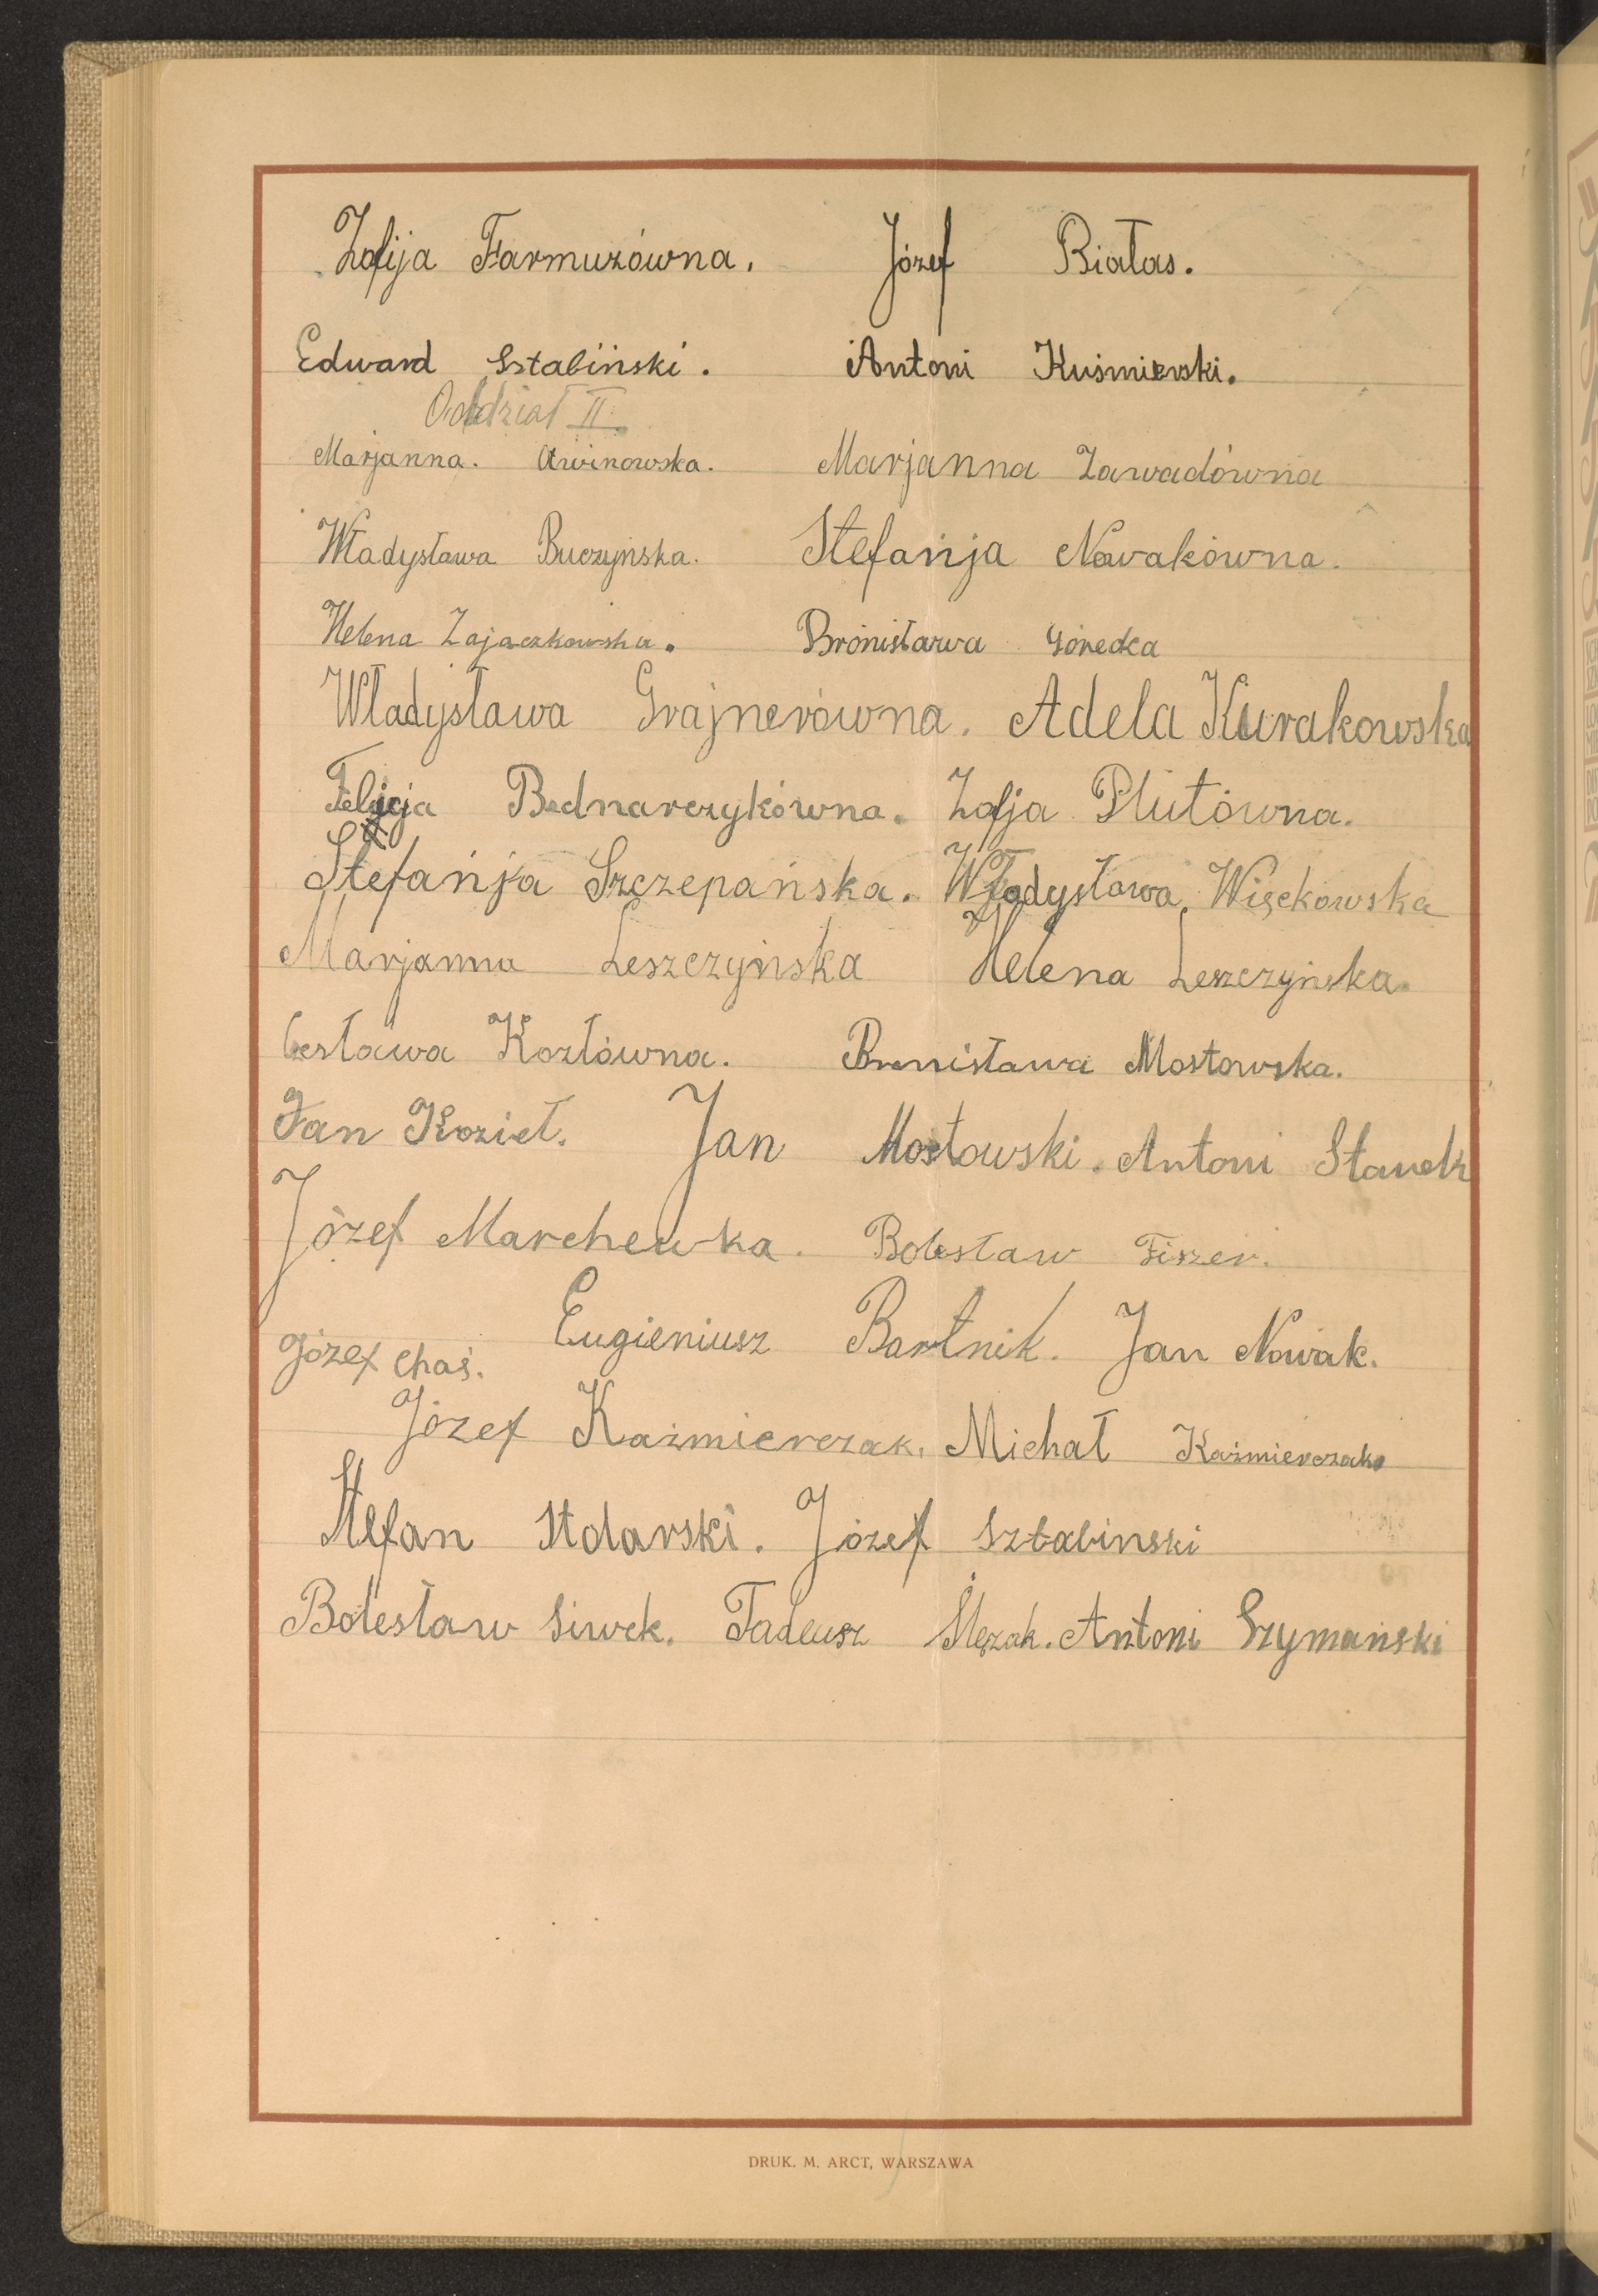 Zofija Farmużówna. Józef Białas.
Edward Sztabiński. Antoni Kuśmierski.
Oddział II.
Marjanna. Awinowska. Marjanna Zawadówna
Władysława Buczyńska. Stefańja Nowakówna.
Helena Zajączkowska. Bronisława Górecka
Władysława Grajnerówna. Adela Kurakowska
Felicja Bednarczykówna. Zofja Plutówna.
Stefańja Szczepańska. Władysława Więckowska
Marjanna Leszczyńska Helena Leszczyńska.
Czesława Kozłówna. Bronisława Mostowska.
Jan Kozieł. Jan Mostowski. Antoni Stanek
Józef Marchewka. Bolesław Fiszer.
Józef Chaś. Eugieniusz Bartnik. Jan Nowak.
Józef Kaźmierczak. Michał Kaźmierczak.
Stefan Stolarski. Józef Sztabinski
Bolesław Siwek. Tadeusz Ślęzak. Antoni Szymański
DRUK. M. ARCT, WARSZAWA